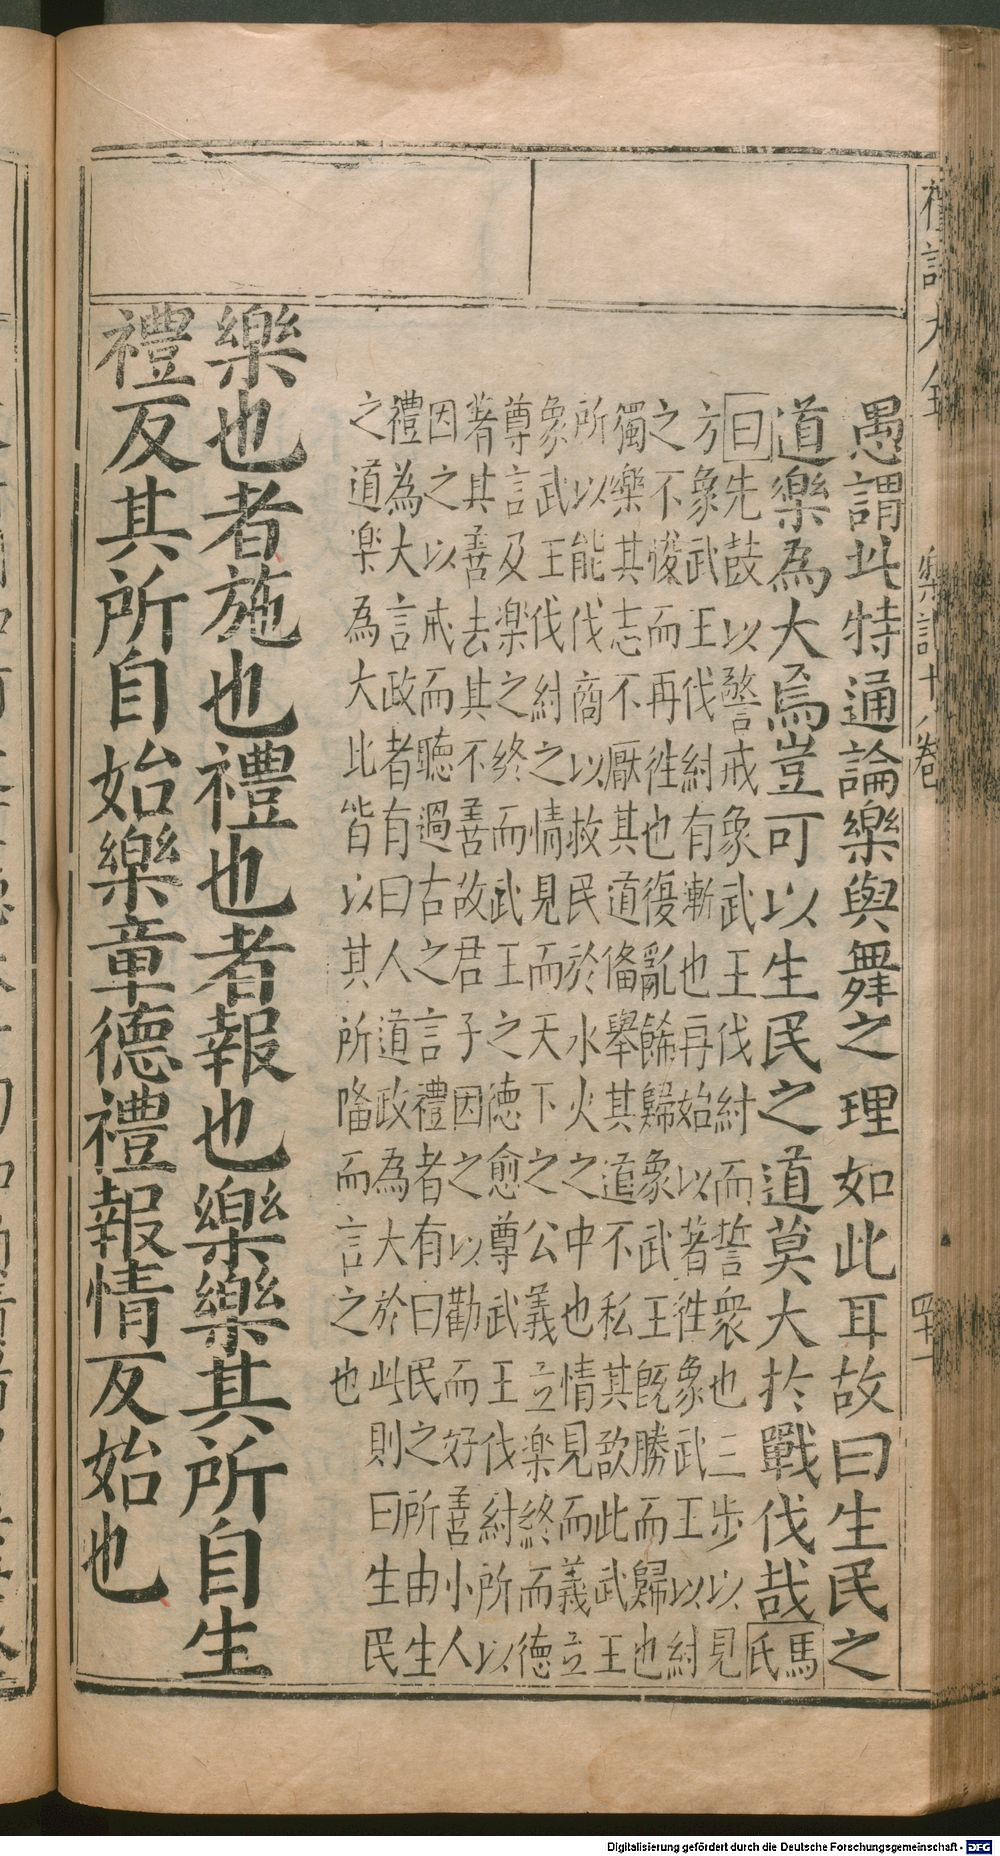 禮記大全 樂記十八卷 四十一
愚謂此特通論樂與舞之理如此耳故曰生民之
道樂為大焉豈可以生民之道莫大扵戰伐哉馬氏
曰先鼓以警戒象武王伐紂而誓衆也三步以見
方象武王伐紂有漸也再始以著徃象武王以紂
之不悛而再徃也復亂餙歸象武王既勝而歸也
獨樂其志不厭其道偹舉其道不私其欲此武王
所以能伐商以救民於水火之中也情見而義立
象武王伐紂之情見而天下之公義立楽終而德
尊言及楽之终而武王之德愈尊武王伐紂所以
著其善去其不善故君子因之以勸而好善小人
因之以戒而聽過古之言禮者有曰民之所由生
禮為大言政者有曰人道政為大於此則曰生民
之道楽為大此皆以其所偹而言之也
樂也者施也禮也者報也樂樂其所自生
禮反其所自始樂章德禮報情反始也
Digitalisierung gefördert durch die Deutsche Forschungsgemeinschaft - DFG